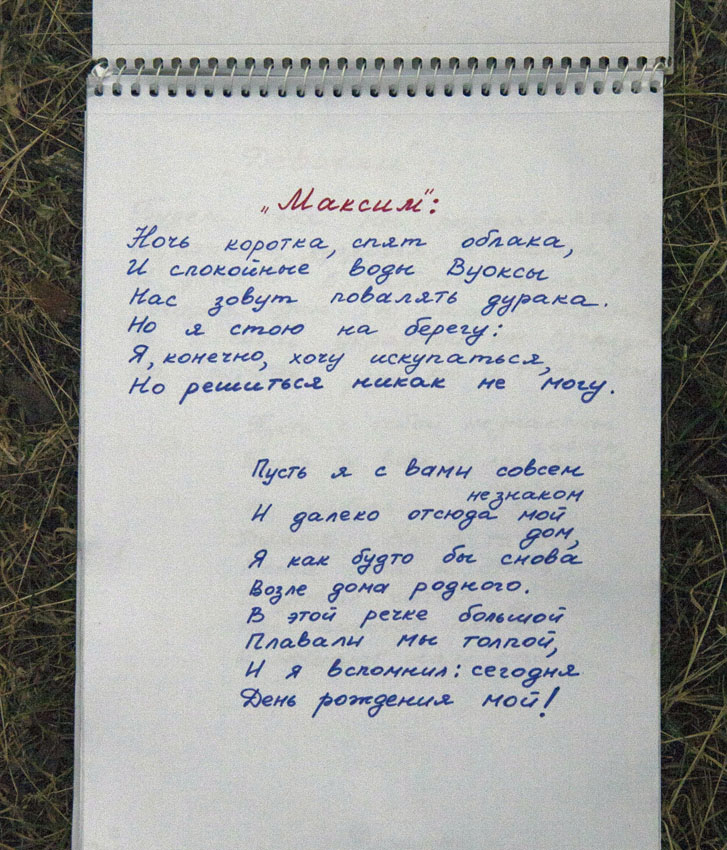 „Максим":
Ночь коротка, спят облака,
И спокойные воды Вуоксы
Нас зовут повалять дурака.
Но я стою на берегу:
Я, конечно, хочу искупаться,
Но решиться никак не могу.
Пусть я с вами совсем
незнаком
И далеко отсюда мой
дом,
Я как будто бы снова
Возле дома родного.
В этой речке большой
Плавали мы толпой,
И я вспомнил: сегодня
День рождения мой!